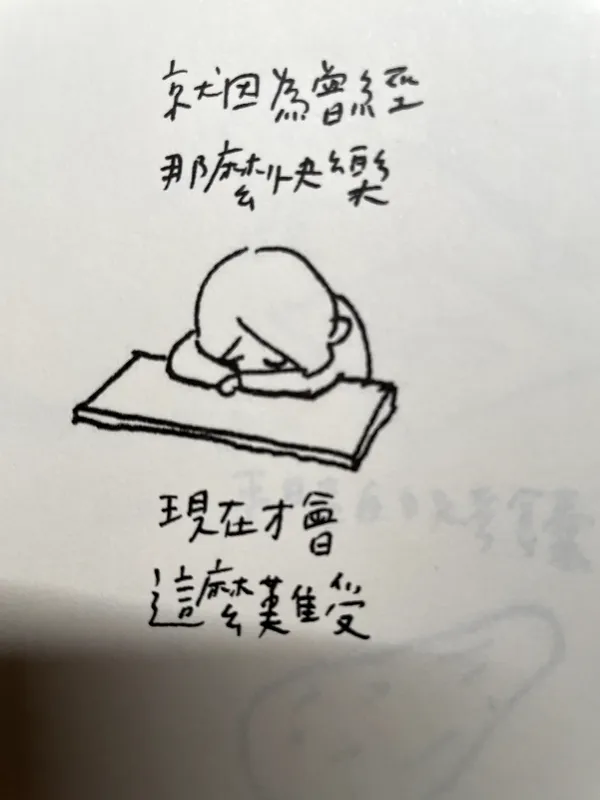 就因為曾經
那麼快樂
現在才會
這麼難受